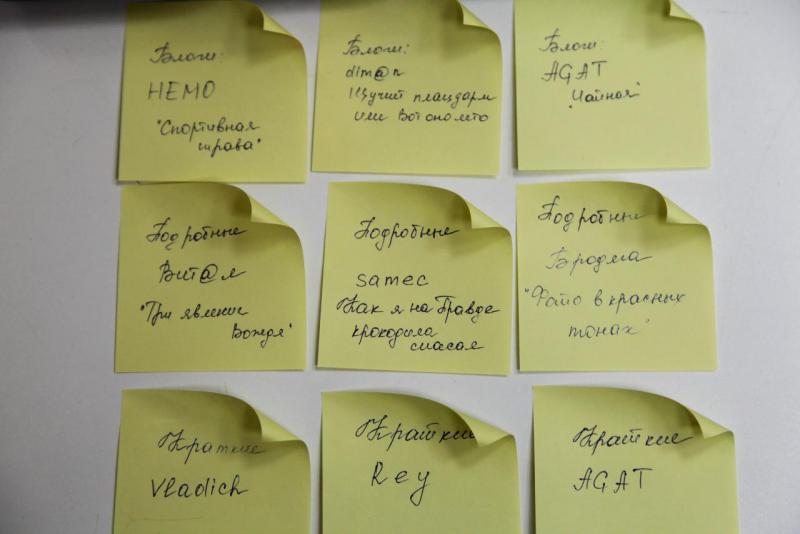 Блоги:
НЕМО
"Спортивная
трава"
Блоги:
dim@n
Изучил плацдарм
или Вот оно лето
Блоги:
AGAT
"Чайная"
Подробные
Вит@л
"Три явление
Вождя"
Подробные
samec
Как я на Правде
крокодила
спасал
Подробные
Бродяга
"Фото в красных
тонах"
Краткие
Vladich
Краткие
Rey
Краткие
AGAT